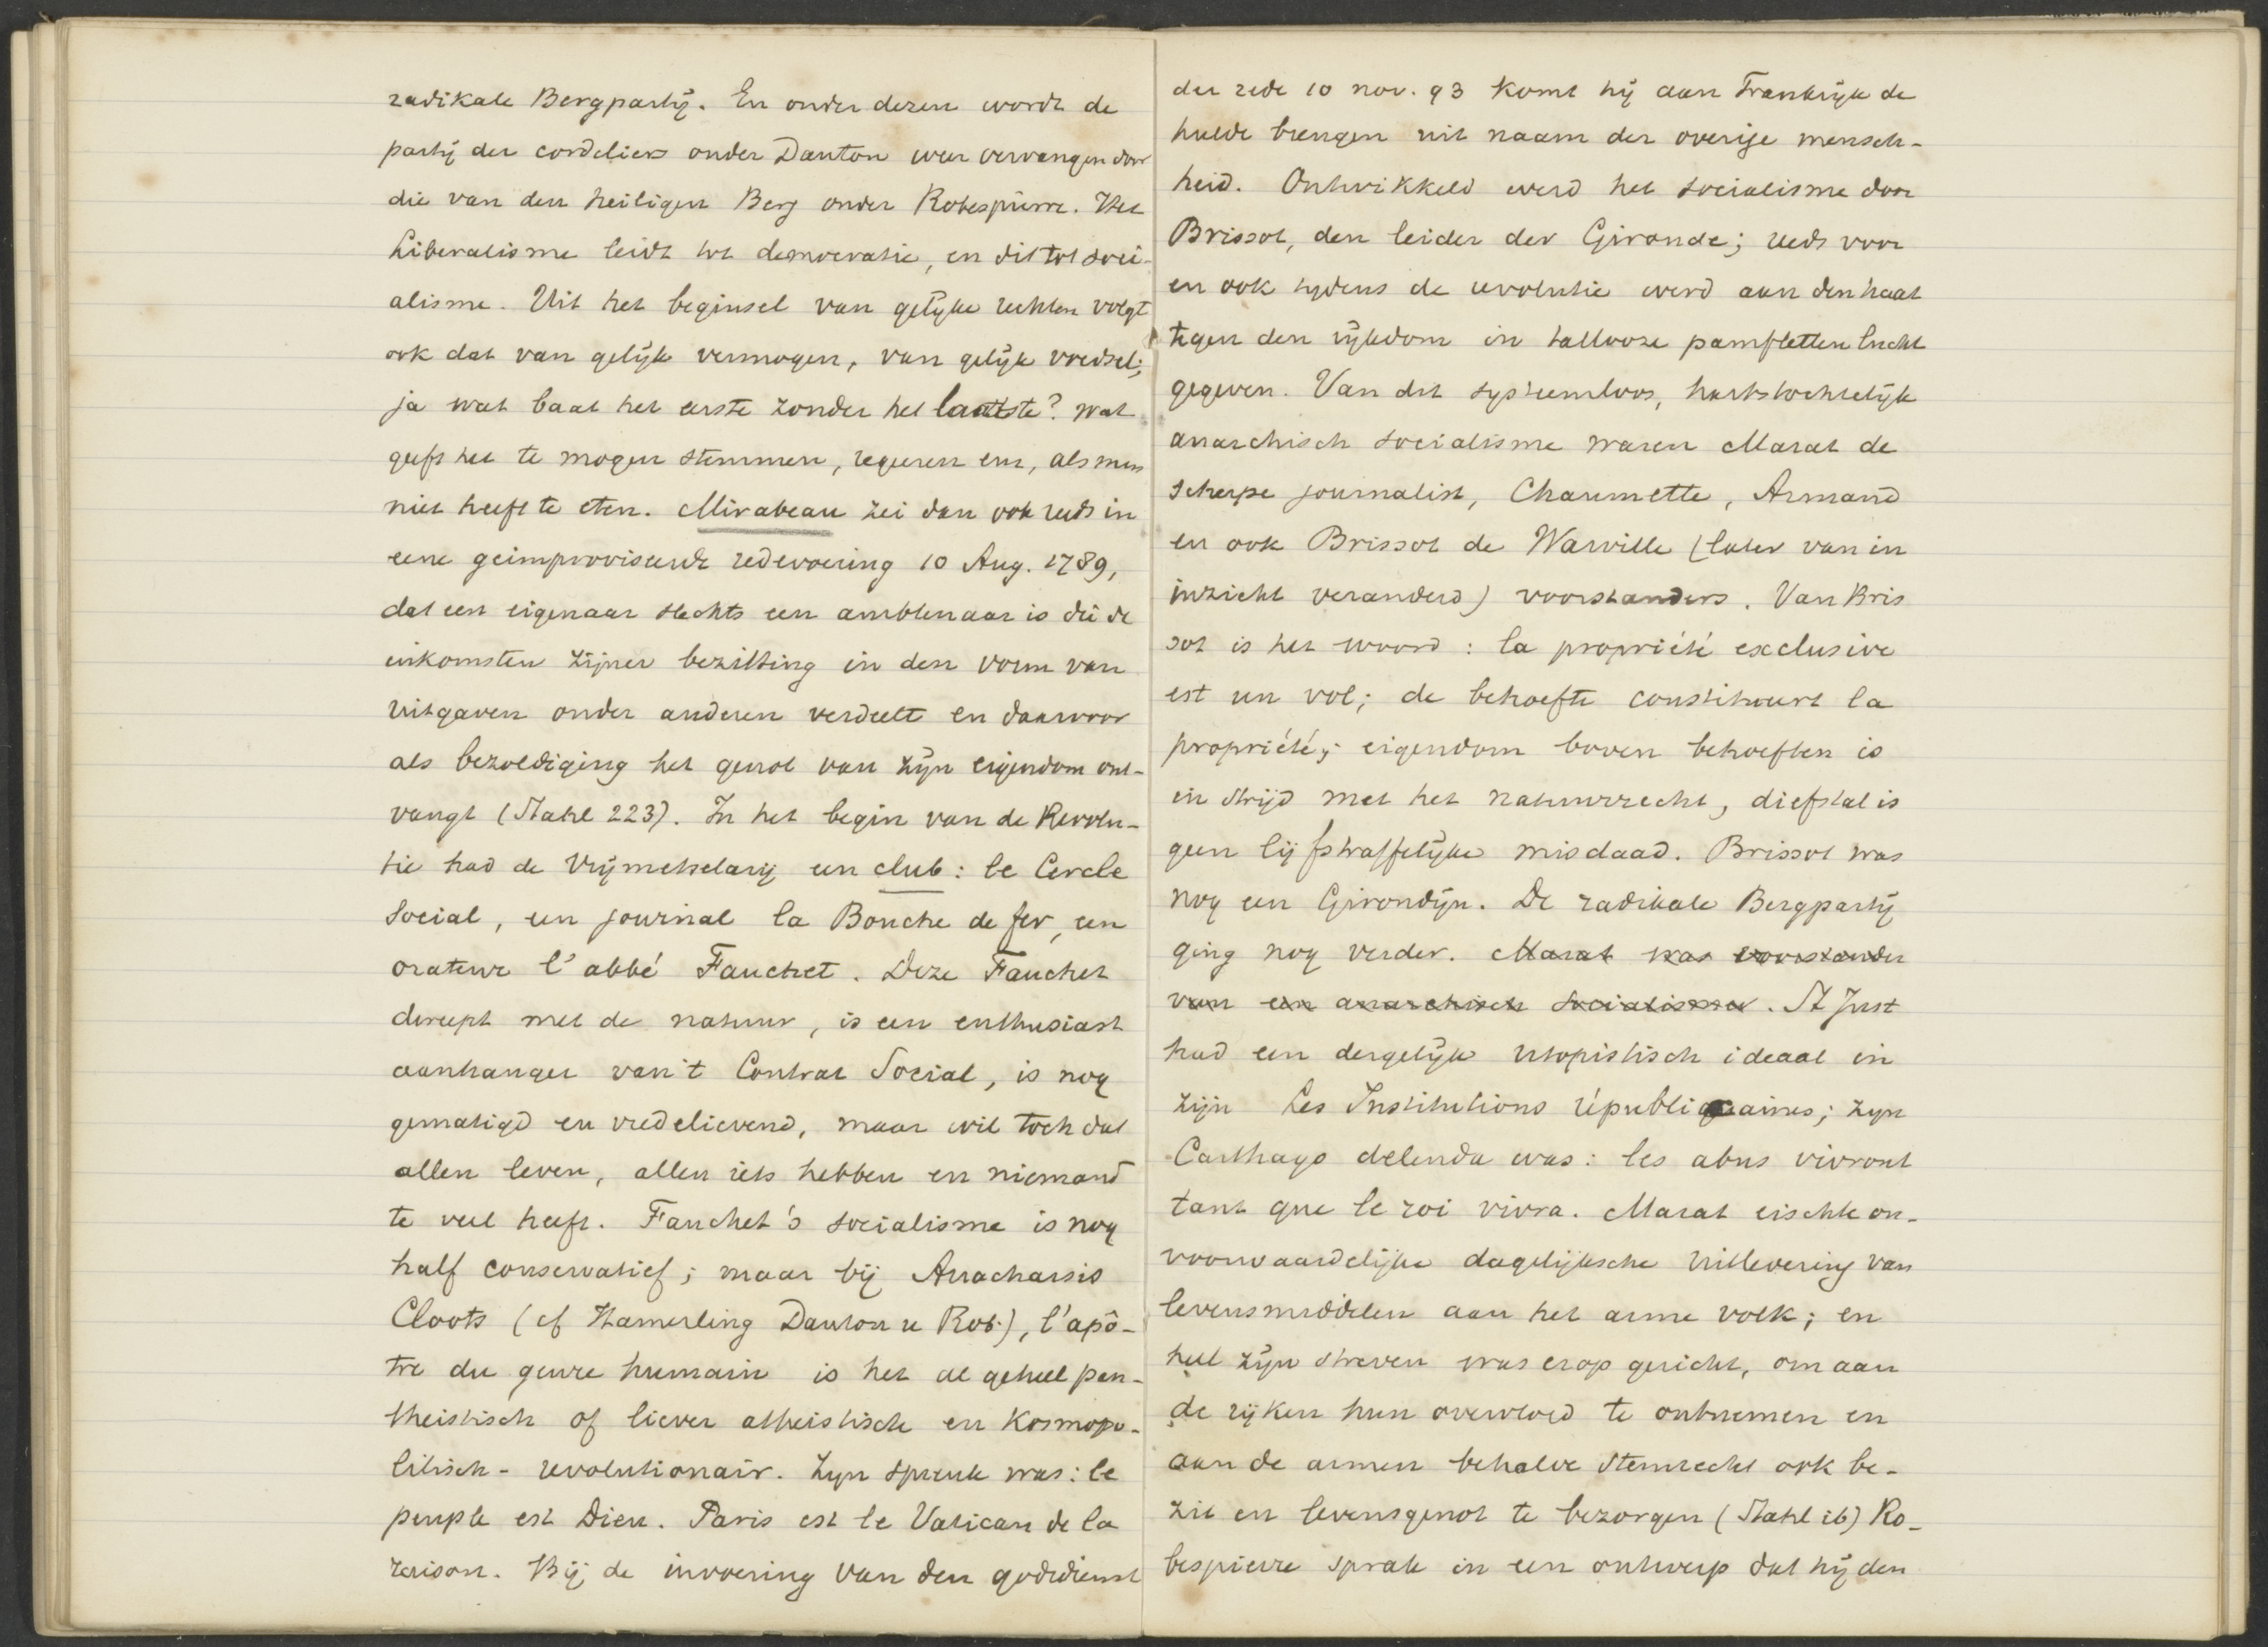 radikale Bergpartij. En onder dezen wordt de
partij der cordeliers onder Danton weer vervangen door
die van den heiligen Berg onder Robespierre. Het
Liberalisme leidt tot democratie, en dit tot soci-
alisme. Uit het beginsel van gelijke rechten volgt
ook dat van gelijk vermogen, van gelijk voedsel;
ja wat baat het eerste zonder het laatste? wat
geeft het te mogen stemmen, regeeren enz, als men
niet heeft te eten. Mirabeau zei dan ook reeds in
eene geimproviseerde redevoering 10 Aug. 1789,
dat een eigenaar slechts een ambtenaar is die de
inkomsten zijner bezitting in den vorm van
uitgaven onder anderen verdeelt en daarvoor
als bezoldiging het genot van zijn eigendom ont-
vangt (Stahl 223). In het begin van de Revolu-
tie had de Vrijmetselarij een club: le Cercle
Social, een journal la Bouche de fer, een
orateur l'abbé Fauchet. Deze Fauchet
dweept met de natuur, is een enthusiast
aanhanger van 't Contrat Social, is nog
gematigd en vredelievend, maar wil toch dat
allen leven, allen iets hebben en niemand
te veel heeft. Fauchet's socialisme is nog
half conservatief; maar bij Anacharsis
Cloots (cf Hamerling Danton u Rob.), l'apô-
tre du genre humain is het al geheel pan-
theistisch of liever atheistisch en kosmopo-
litisch-revolutionair. Zijn spreuk was: le
peuple est Dieu. Paris est le Vatican de la
raison. Bij de invoering van den godsdienst
der rede 10 nov. 93 komt hij aan Frankrijk de
hulde brengen uit naam der overige mensch-
heid. Ontwikkeld werd het socialisme door
Brissot, den leider der Gironde; reeds voor
en ook tijdens de revolutie werd aan den haat
tegen den rijkdom in tallooze pamfletten lucht
gegeven. Van dit systeemloos, hartstochtelijk
anarchisch socialisme waren Marat de
scherpe journalist, Chaumette, Armand
en ook Brissot de Warville (later van in
inzicht veranderd) voorstanders. Van Bris
sot is het woord: la propriété exclusive
est un vol; de behoefte constitueert la
propriété; eigendom boven behoeften is
in strijd met het natuurrecht, diefstal is
geen lijfstraffelijke misdaad. Brissot was
nog een Girondijn. De radikale Bergpartij
ging nog verder. Marat was voorstander
van een anarchisch socialisme. St Just
had een dergelijk utopistisch ideaal in
zijn Les Institutions républiquaines; zijn
Carthago delenda was: les abus vivront
tant que le roi vivra. Marat eischte on-
voorwaardelijke dagelijksche uitlevering van
levensmiddelen aan het arme volk; en
heel zijn streven was erop gericht, om aan
de rijken hun overvloed te ontnemen en
aan de armen behalve stemrecht ook be-
zit en levensgenot te bezorgen (Stahl ib) Ro-
bespierre sprak in een ontwerp dat hij den